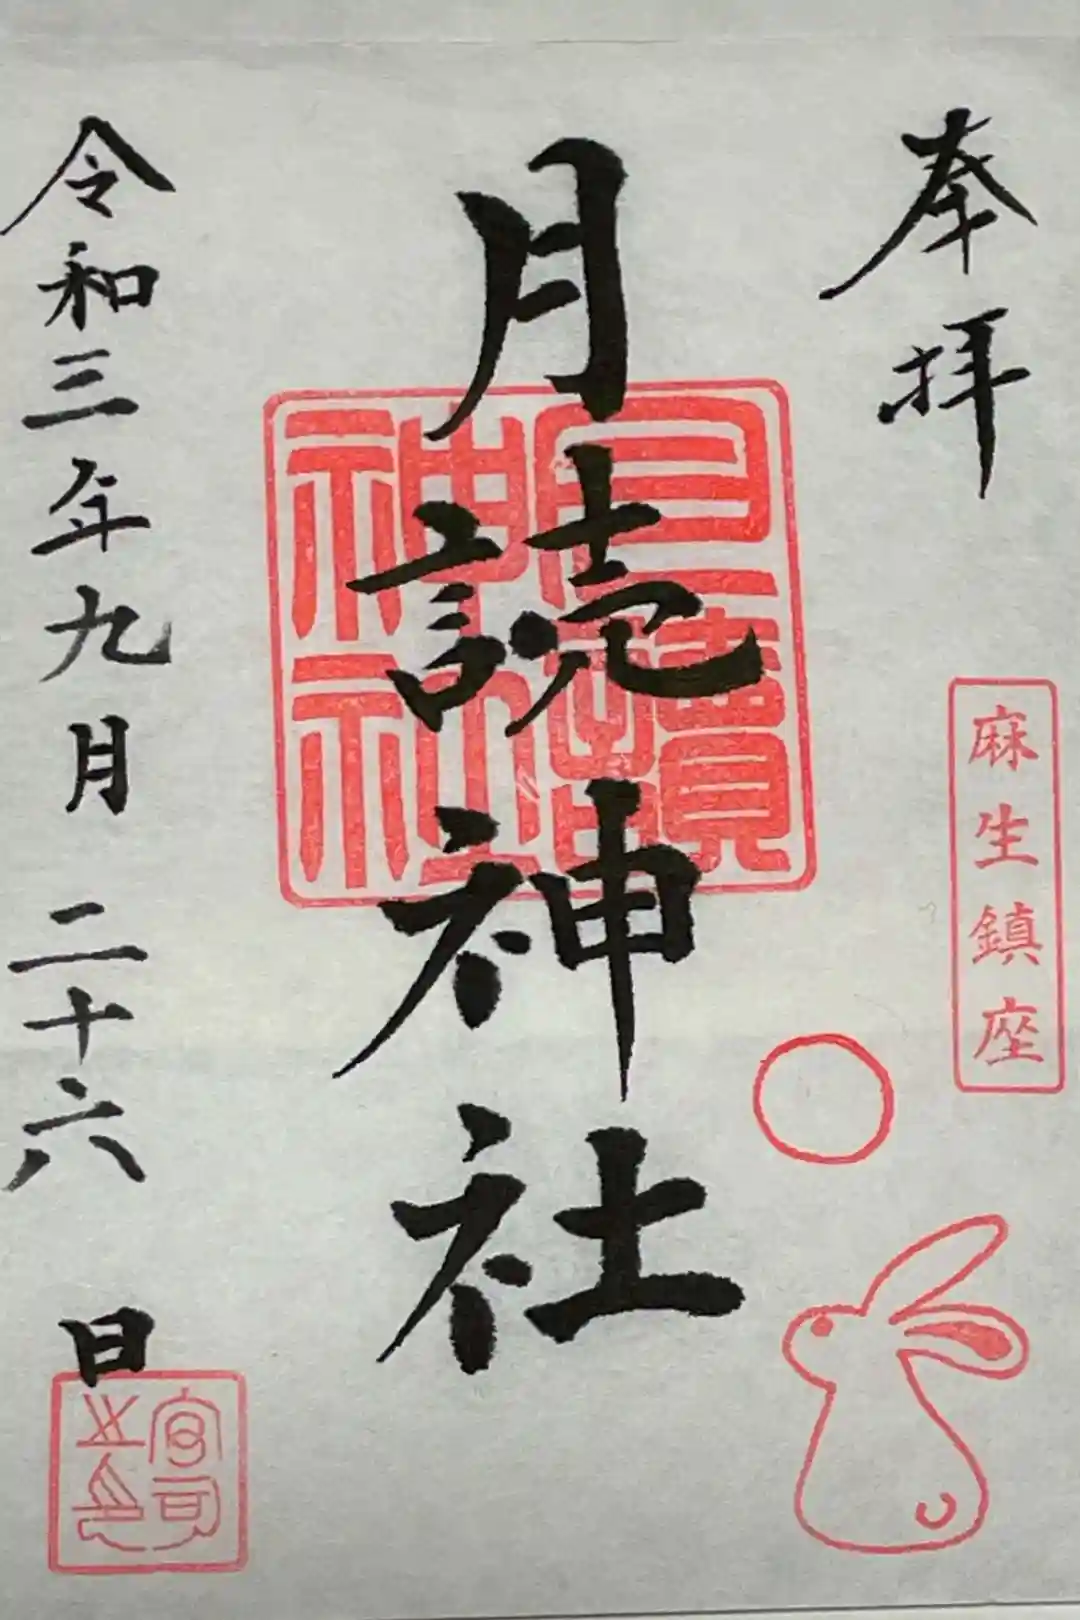 奉拝
麻生鎮座
月読神社
月讀神社
令和三年九月二十六日
宮司之印